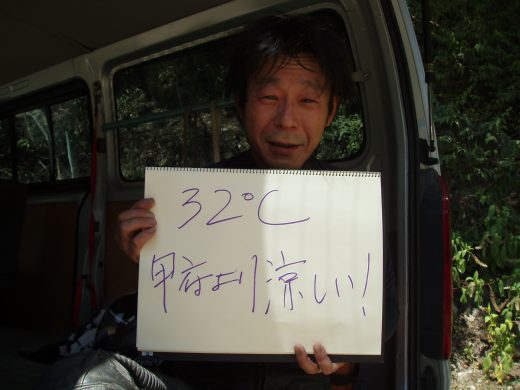 32℃
甲府より涼しい!